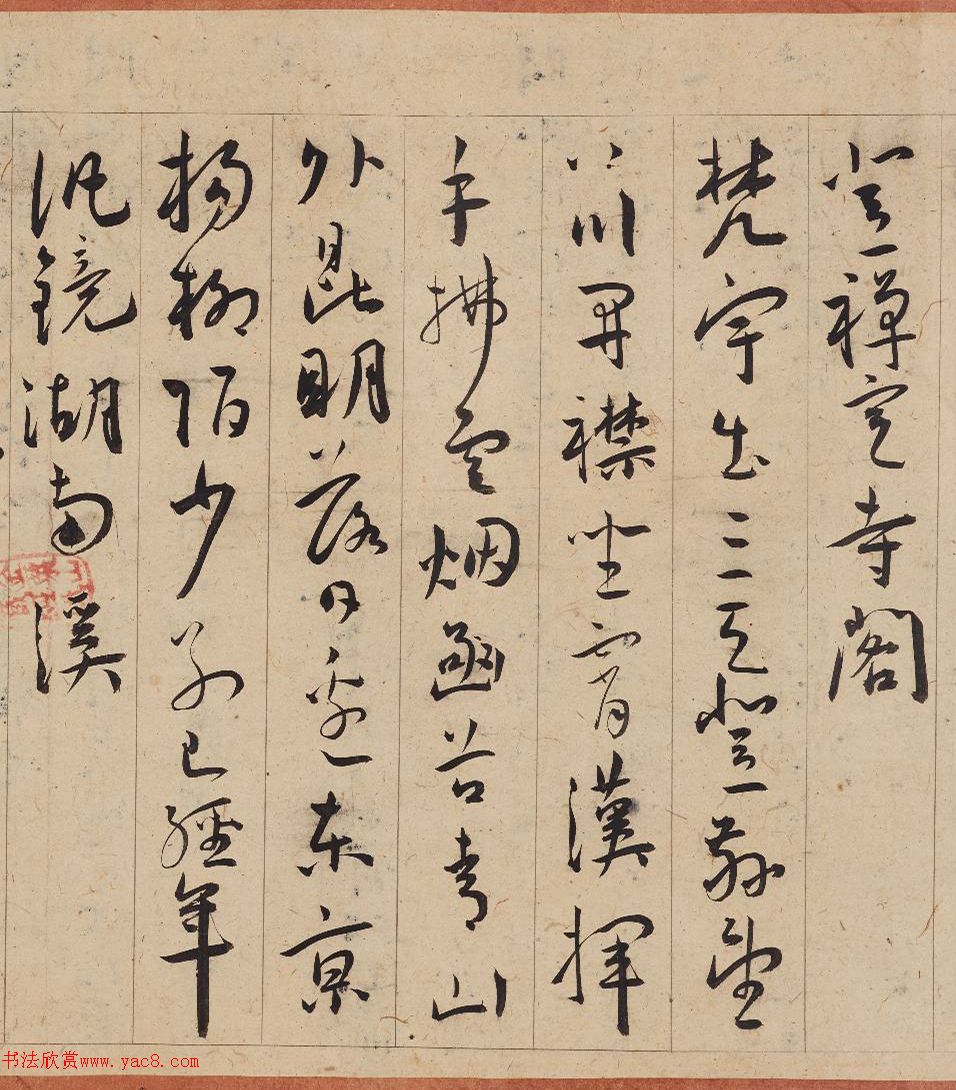 登禅定寺閣
梵宇出三天登臨望
八川開襟坐霄漢揮
手拂雲烟函谷青山
外昆明落日邊東京
楊柳陌少別已經年
汎鏡湖南溪
书法欣赏www.yac8.com